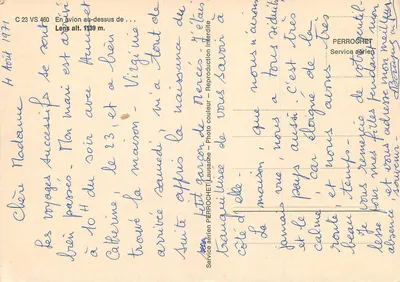 C 23 VS 460 En avion au-dessus de . . .
Lens alt. 1139 m.
PERROCHET
Service aérien
Service aérien PERROCHET Lausanne - Photo couleur - Reproduction interdite
4 Août 1971
Chère Madame
Les voyages successifs se sont
bien passés. Mon mari est arrivé
à 10H du soir avec Annet
Catherine, le 23, et a bien
trouvé la maison. Virginie
arrivée samedi, m'a tout de
suite appris la naissance du
petit garçon de Mercédès. J'étais
tranquillisée de vous savoir à
côté d'elle.
La maison, que nous n'avions
jamais vue nous a tous séduits
et le pays aussi. c'est très
calme, car éloigné de la
route, et nous avons
beau temps.
Je vous remercie de votre
pour mes filles pendant mon
absence, et vous adresse mon meilleur
souvenir.